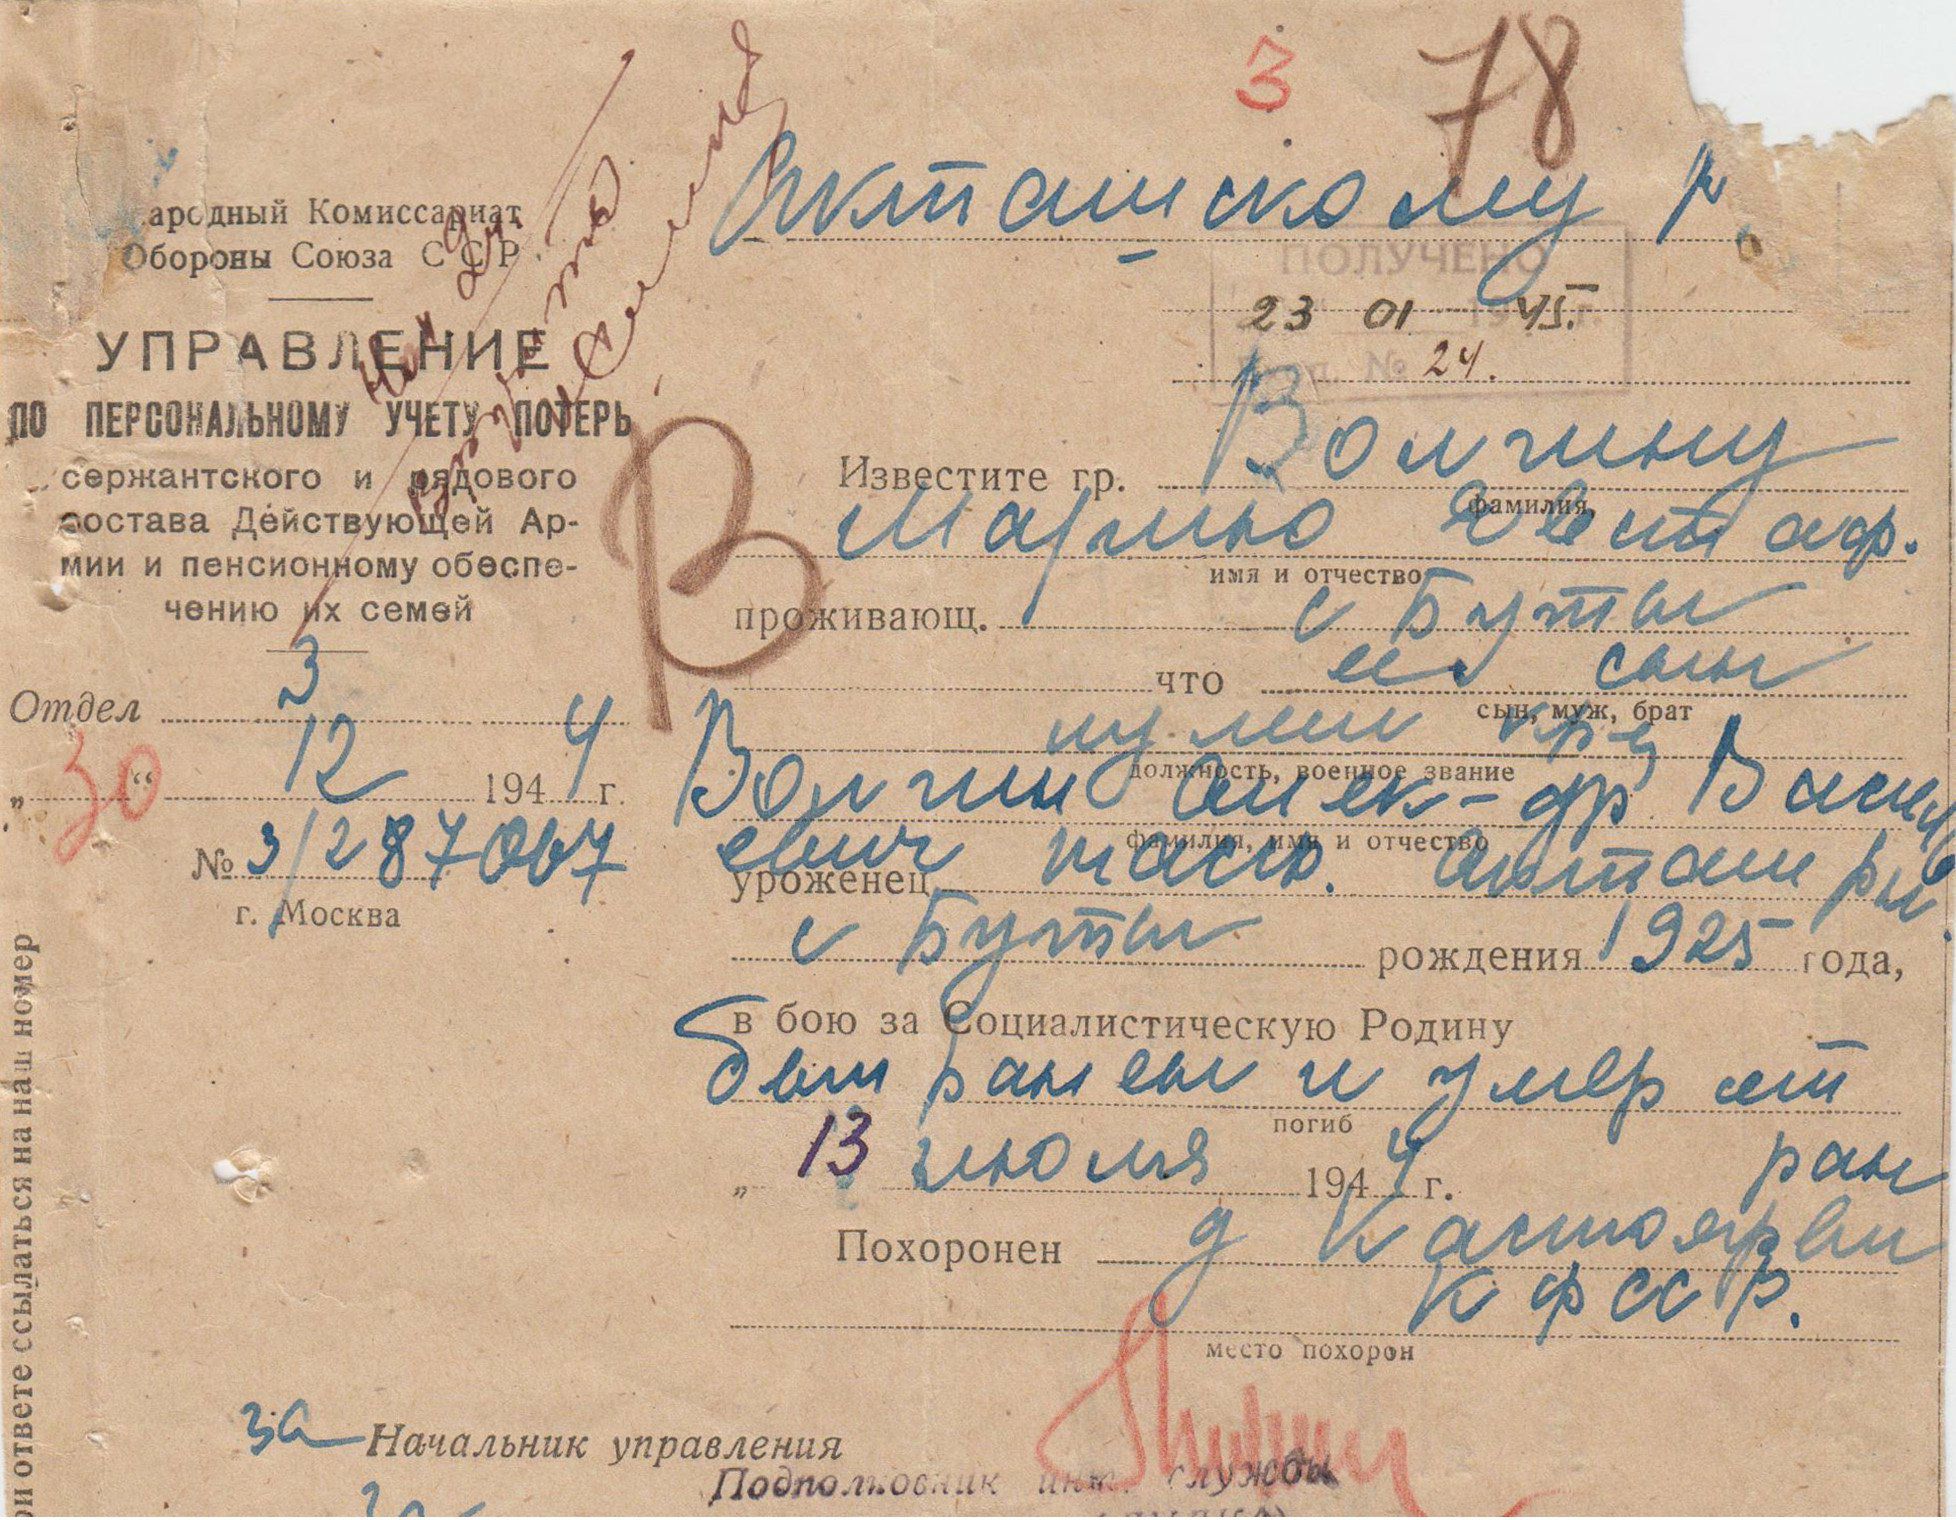 3 78
Народный Комиссариат
Обороны Союза ССР
УПРАВЛЕНИЕ
ПО ПЕРСОНАЛЬНОМУ УЧЕТУ ПОТЕРЬ
сержантского и рядового
состава Действующей Ар-
мии и пенсионному обеспе-
чению их семей
Отдел 3
„30“ 12 1944 г.
№ 3/287067
г. Москва
При ответе ссылаться на наш номер
Акташскому р
ПОЛУЧЕНО
23 01 1945 г.
№ 24.
В
Известите гр. Волгину
фамилия,
Марию Евстаф.
имя и отчество
проживающ. с Буты
что ее сын
сын, муж, брат
кр-ц
должность, военное звание
Волгин Алек-др Василь
фамилия, имя и отчество
евич
уроженец таcс. Акташ р-н
с Буты рождения 1925 года,
в бою за Социалистическую Родину
был ранен и умер от
погиб
„13 июля 1944 г. ран
Похоронен д Кастоярви
КФССР.
место похорон
за Начальник управления
Подполковник инт. службы